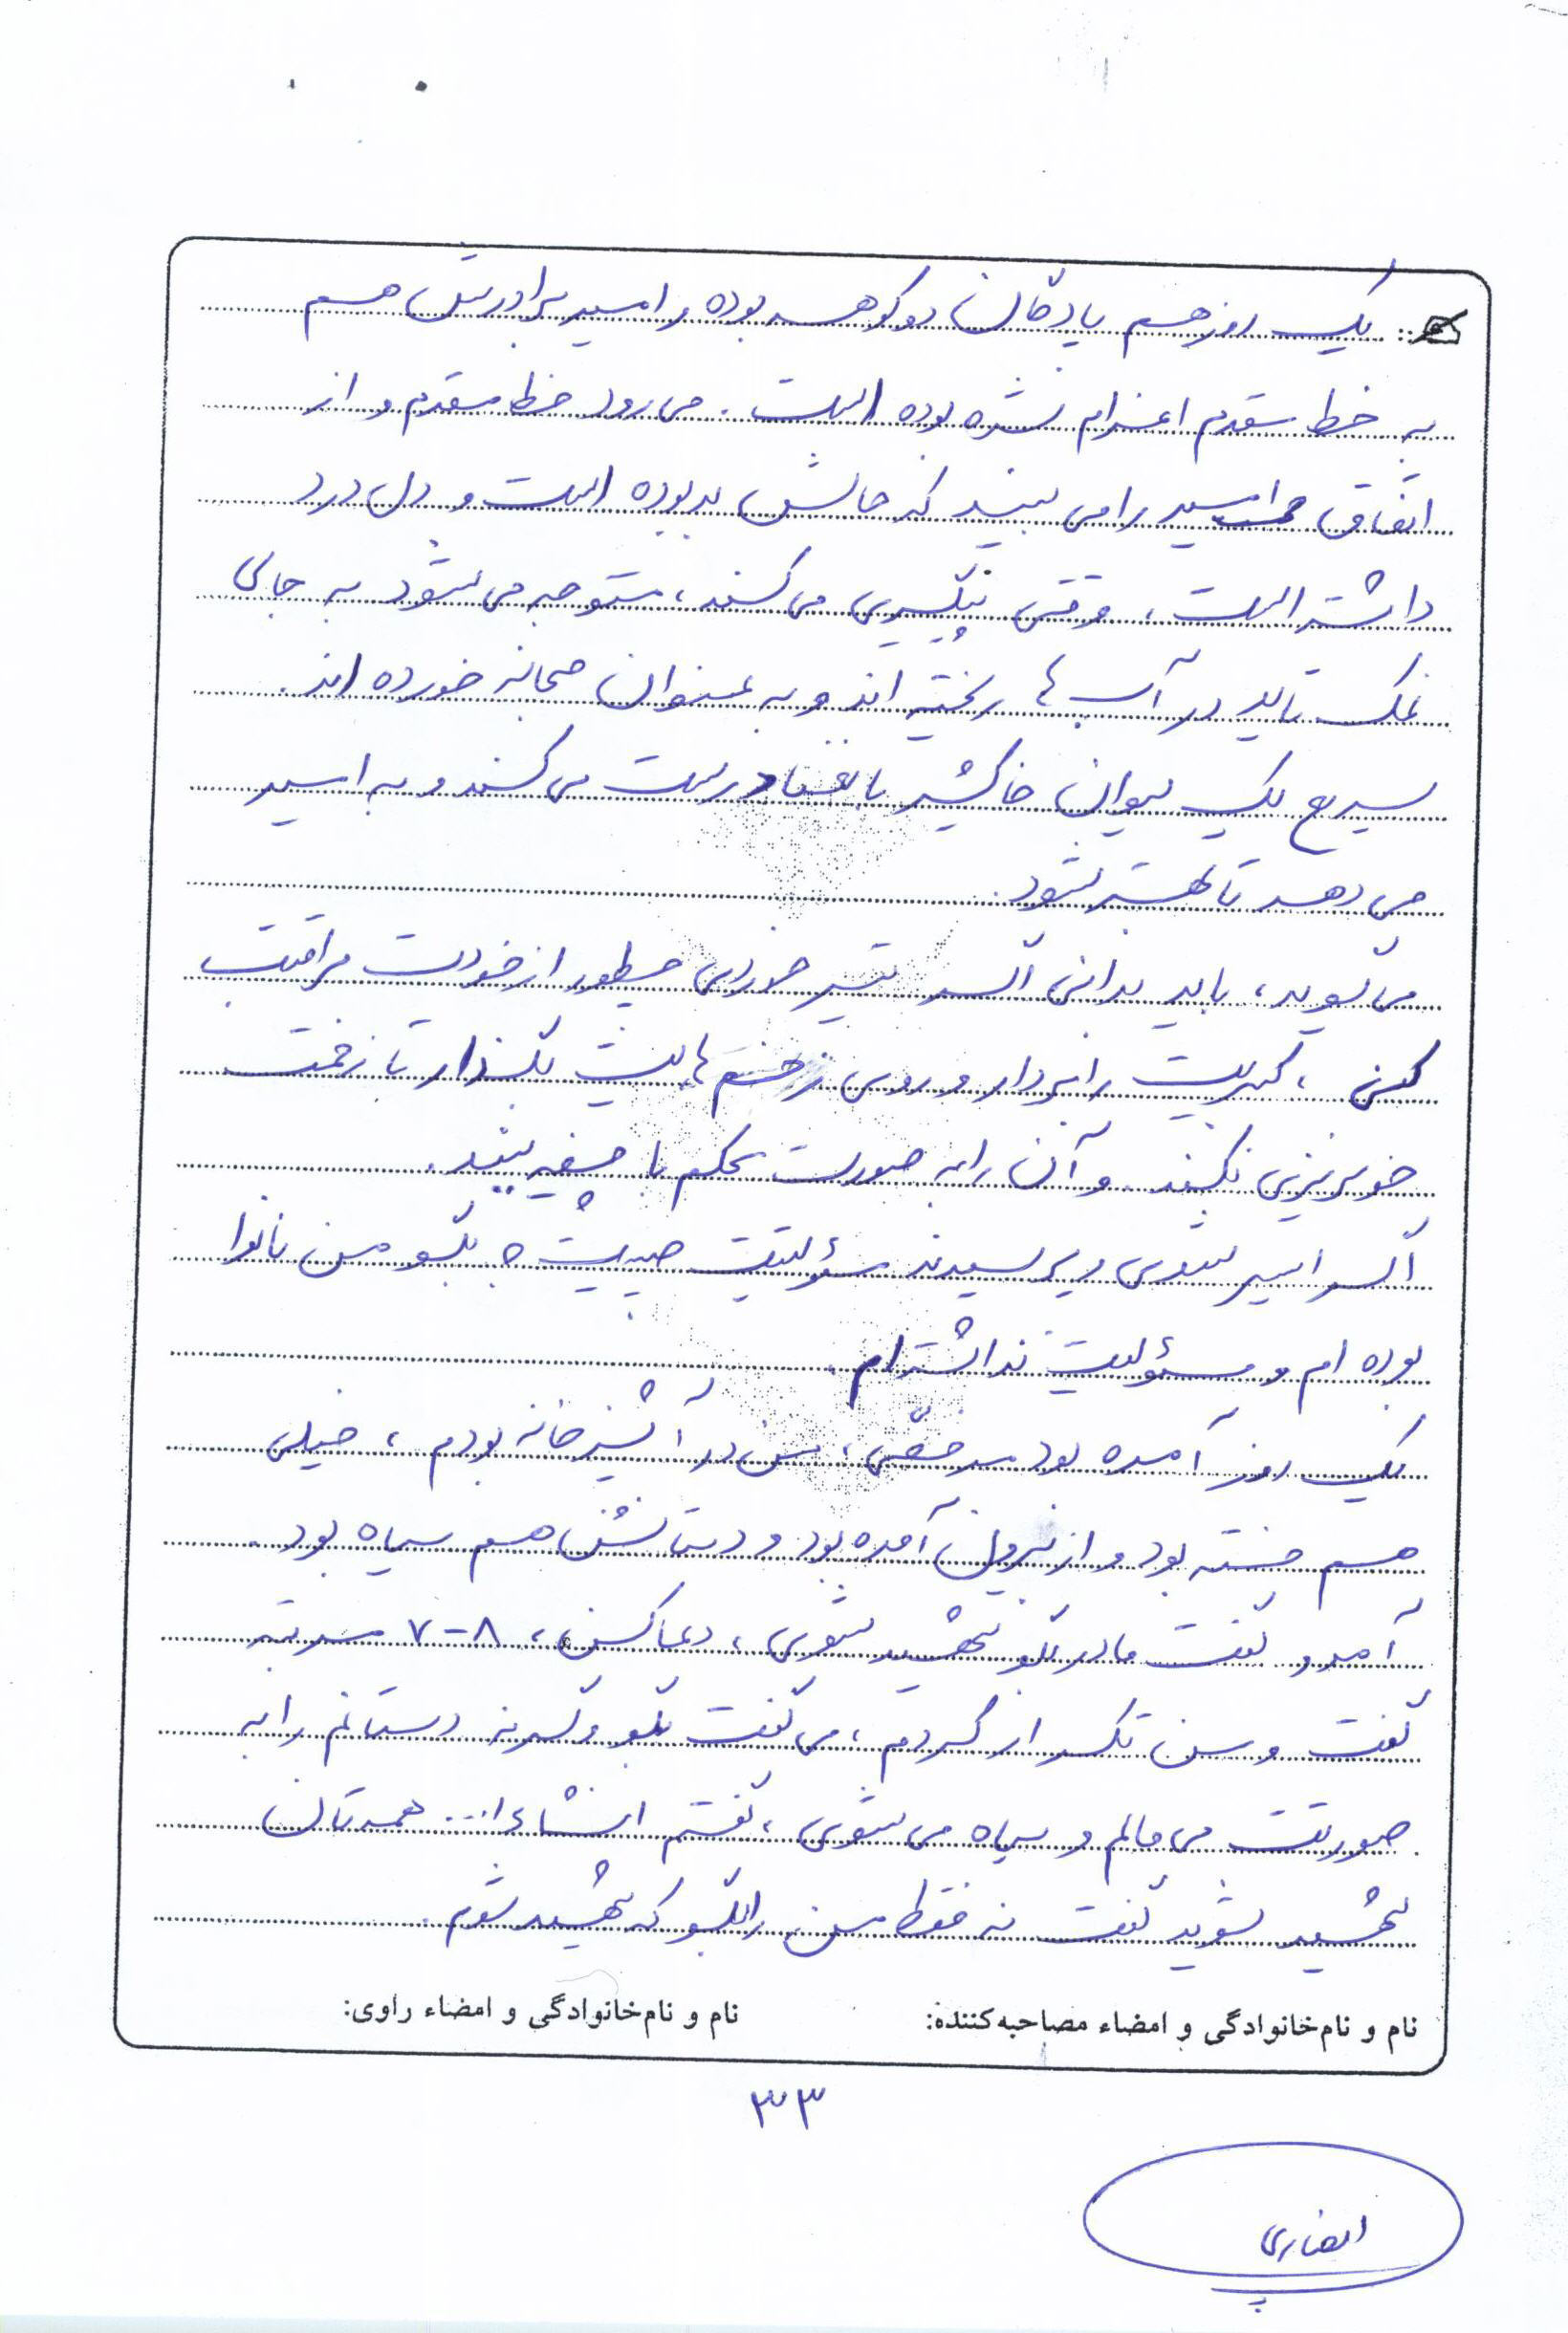 یک روز هم پادگان دوکوهه بوده و امیر برادرش هم
به خط مقدم اعزام شده بوده است. می رود خط مقدم و از
اتفاق امیر را می بیند که حالش بد بوده است و دل درد
داشته است، وقتی پیگیری می کند، متوجه می شود به جای
نمک تاید در آب ها ریخته اند و به عنوان صبحانه خورده اند.
سریع یک لیوان خاکشیر با درست می کند و به امیر
می دهد تا بهتر شود.
می گوید، باید بدانی اگر تیر خوردی چطور از خودت مراقبت
کنی، کبریت را بردار و روی زخم هایت بگذار تا زخمت
خونریزی نکند و آن را به صورت محکم با چفیه ببند.
اگر اسیر شدی و پرسیدند مسؤلیتت چیست؟ بگو من نانوا
بوده ام و مسئولیت نداشته ام.
یک روز آمده بود مرخصی، من در آشپزخانه بودم، خیلی
هم خسته بود و از بیرون آمده بود و دستانش هم سیاه بود.
آمد و گفت مادر بگو شهید شوی، دعا کن، ۸-۷ مرتبه
گفت و من تکرار کردم، می گفت بگو وگرنه دستانم را به
صورتت می مالم و سیاه می شوی، گفتم انشاءا... همه تان
شهید شوید گفت نه فقط من را بگو که شهید شوم.
نام و نام‌خانوادگی و امضاء مصاحبه‌کننده: نام و نام‌خانوادگی و امضاء راوی:
۳۳
انصاری